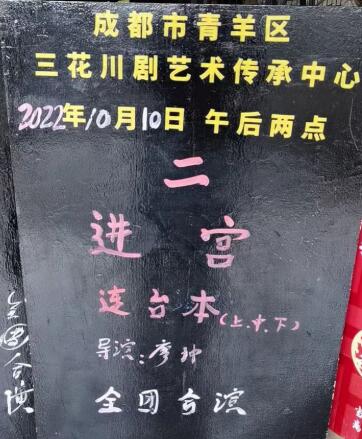 成都市青羊区
三花川剧艺术传承中心
2022年10月10日 午后两点
二
进宫
连台本(上.中.下)
导演:廖珅
全团合演
全团合演